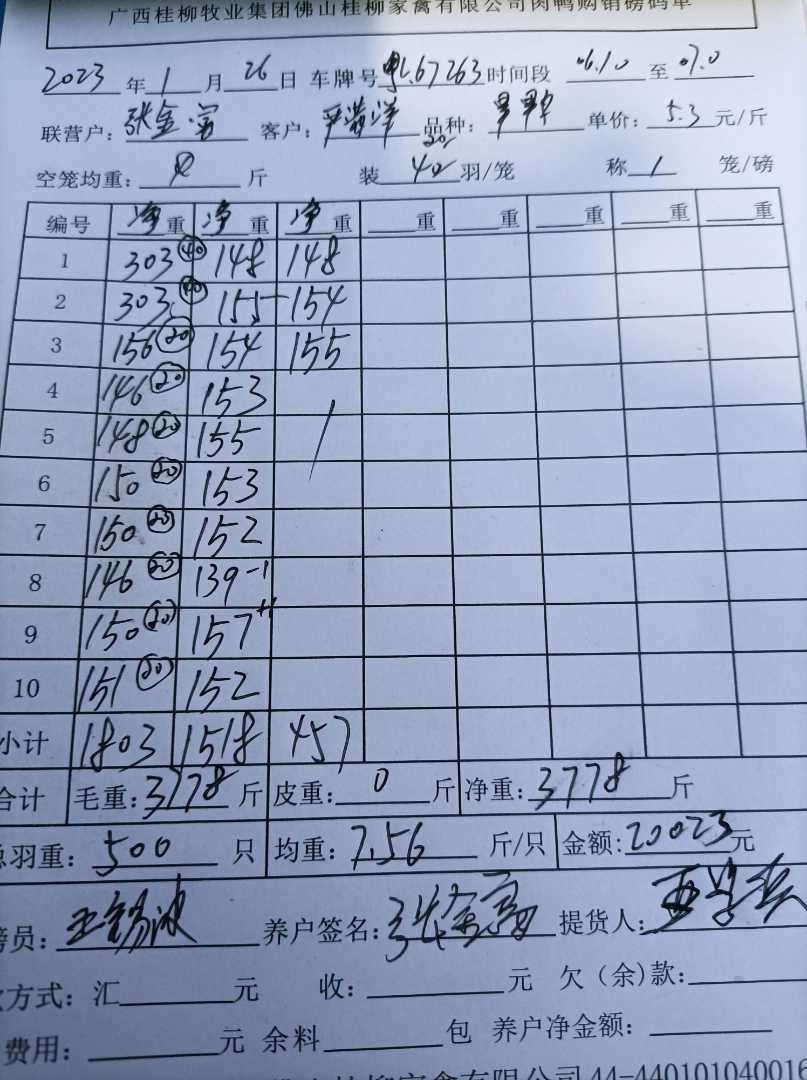 广西桂柳牧业集团佛山桂柳家禽有限公司肉鸭购销磅码单
2023 年 1 月 26 日 车牌号 67263 时间段 06.10 至 07.0
联营户: 张金富 客户: 严 洋 品种: 单价: 5.3 元/斤
空笼均重: 0 斤 装 20 40 羽/笼 称 1 笼/磅
编号 净重 净重 净重 重 重 重 重 重
1 303 ㊵ 148 148
2 303 ㊵ 155 154
3 156 ⑳ 154 155
4 146 ⑳ 153
5 148 ⑳ 155 /
6 150 ⑳ 153
7 150 ⑳ 152
8 146 ⑳ 139 -1
9 150 ⑳ 157 +1
10 151 ⑳ 152
小计 1803 1518 457
合计 毛重: 3778 斤 皮重: 0 斤 净重: 3778 斤
总羽重: 500 只 均重: 7.56 斤/只 金额: 20023 元
磅员: 王 波 养户签名: 张金富 提货人:
方式: 汇 元 收: 元 欠(余)款:
费用: 元 余料 包 养户净金额:
桂柳家禽有限公司 44-440101040016